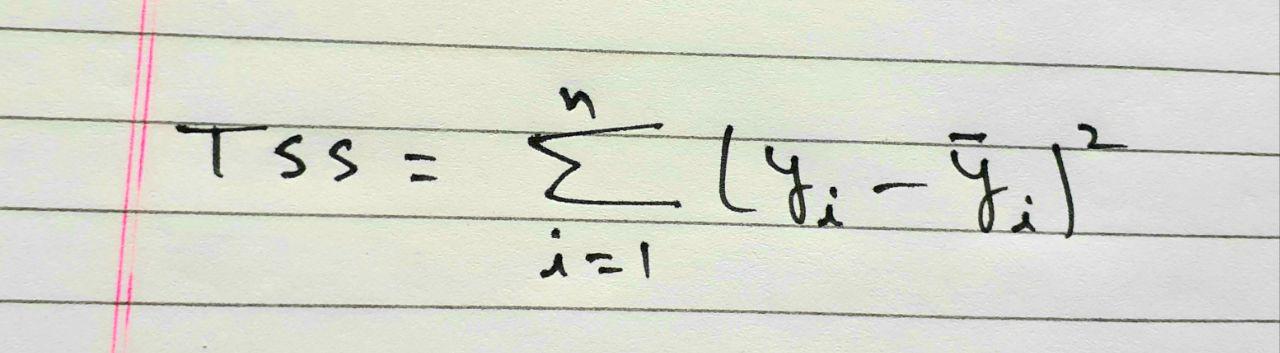 TSS = \sum_{i=1}^{n} (y_i - \bar{y}_i)^2